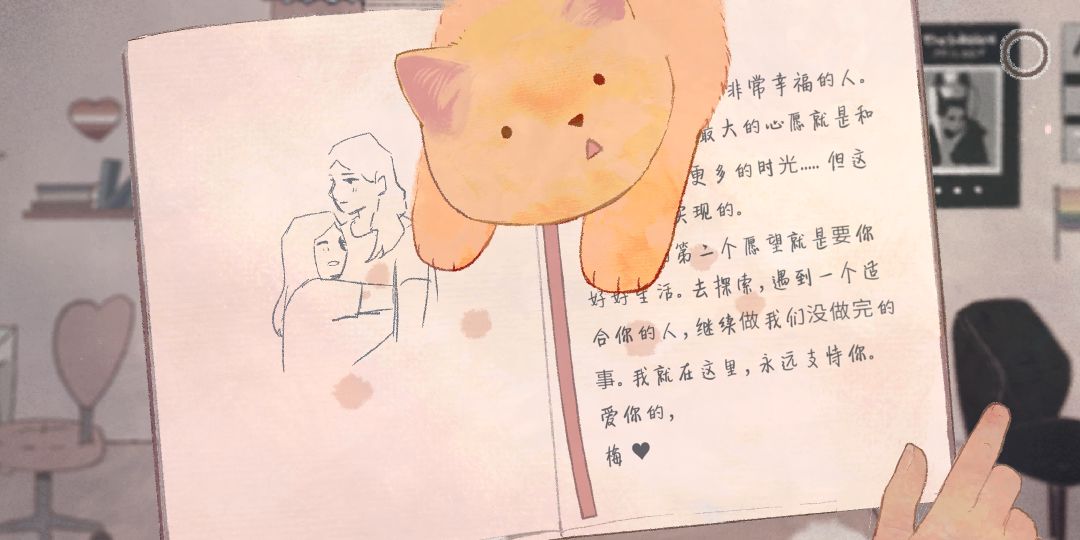 非常幸福的人。
最大的心愿就是和
更多的时光……但这
实现的。
第二个愿望就是要你
好好生活。去探索，遇到一个适
合你的人，继续做我们没做完的
事。我就在这里，永远支持你。
爱你的，
梅♥